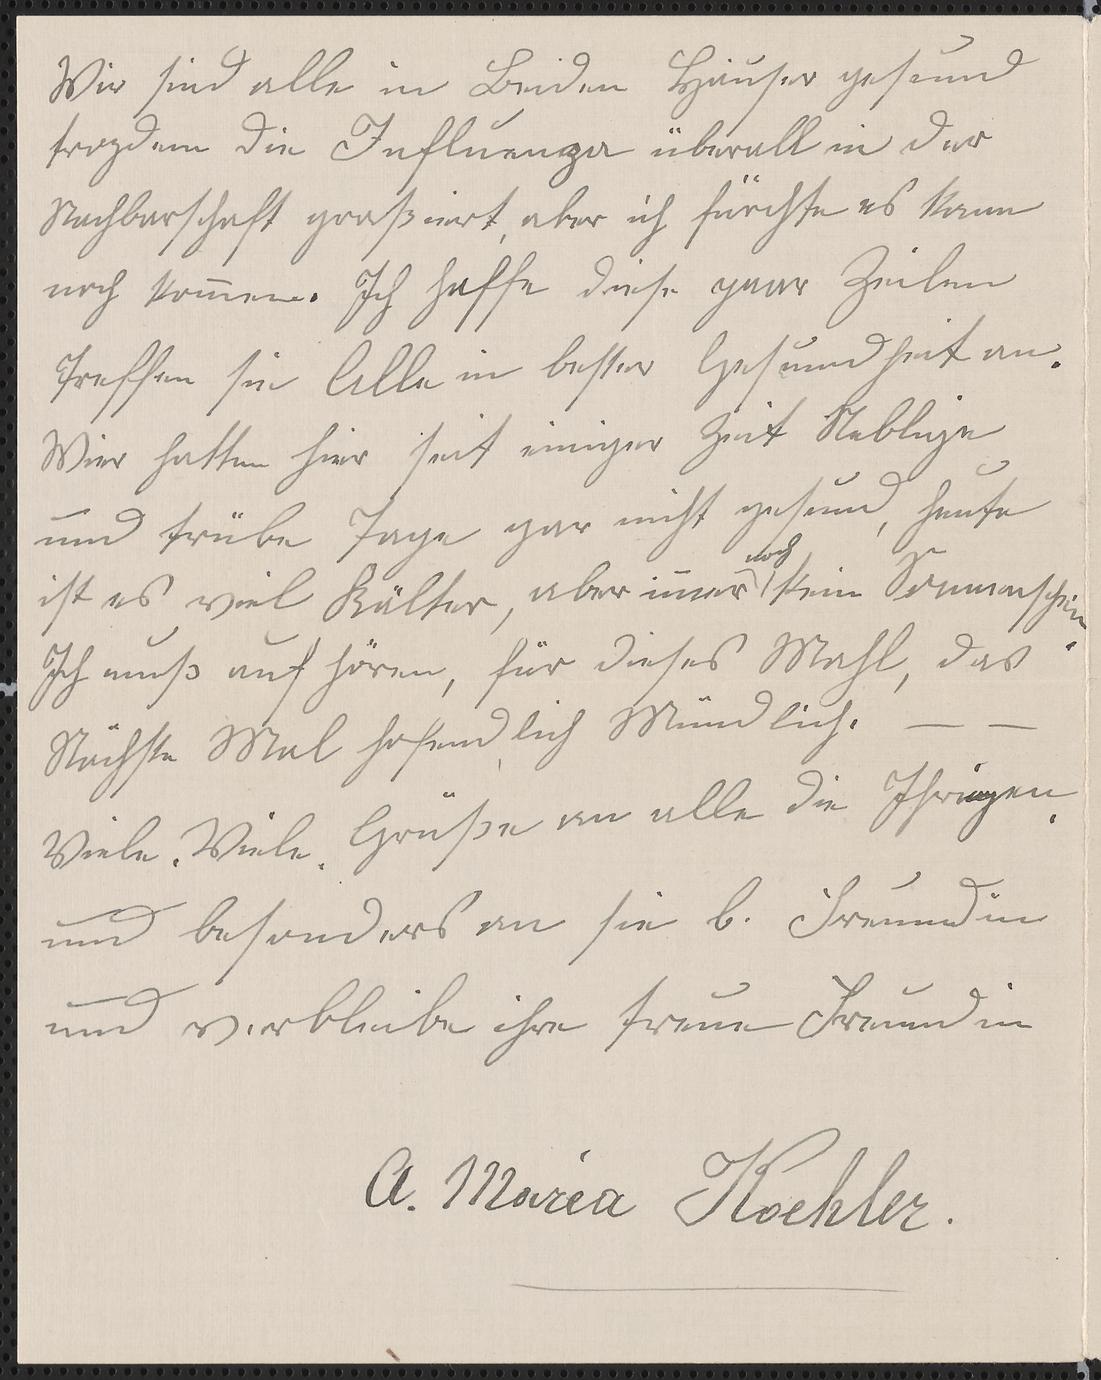 Wir sind alle in Beiden Häuser gesund
trozdem die Influenza überall in der
Nachbarschaft graßiert, aber ich fürchte es kann
noch kom̄en. Ich hoffe diese paar Zeilen
treffen sie Alle in bester Gesundheit an.
Wier hatten hier seit einiger Zeit Neblige
und trübe Tage gar nicht gesund, heute
ist es viel Kälter, aber im̄er noch kein Sonnenschein.
Ich muß auf hören, für dieses Mahl, das
Nächste Mal hofendlich Mündlich. — —
Viele, Viele, Grüße an alle die Ihrigen,
und besonders an sie l. Freundin
und verbleibe ihre treue Freundin
A. Maria Koehler.